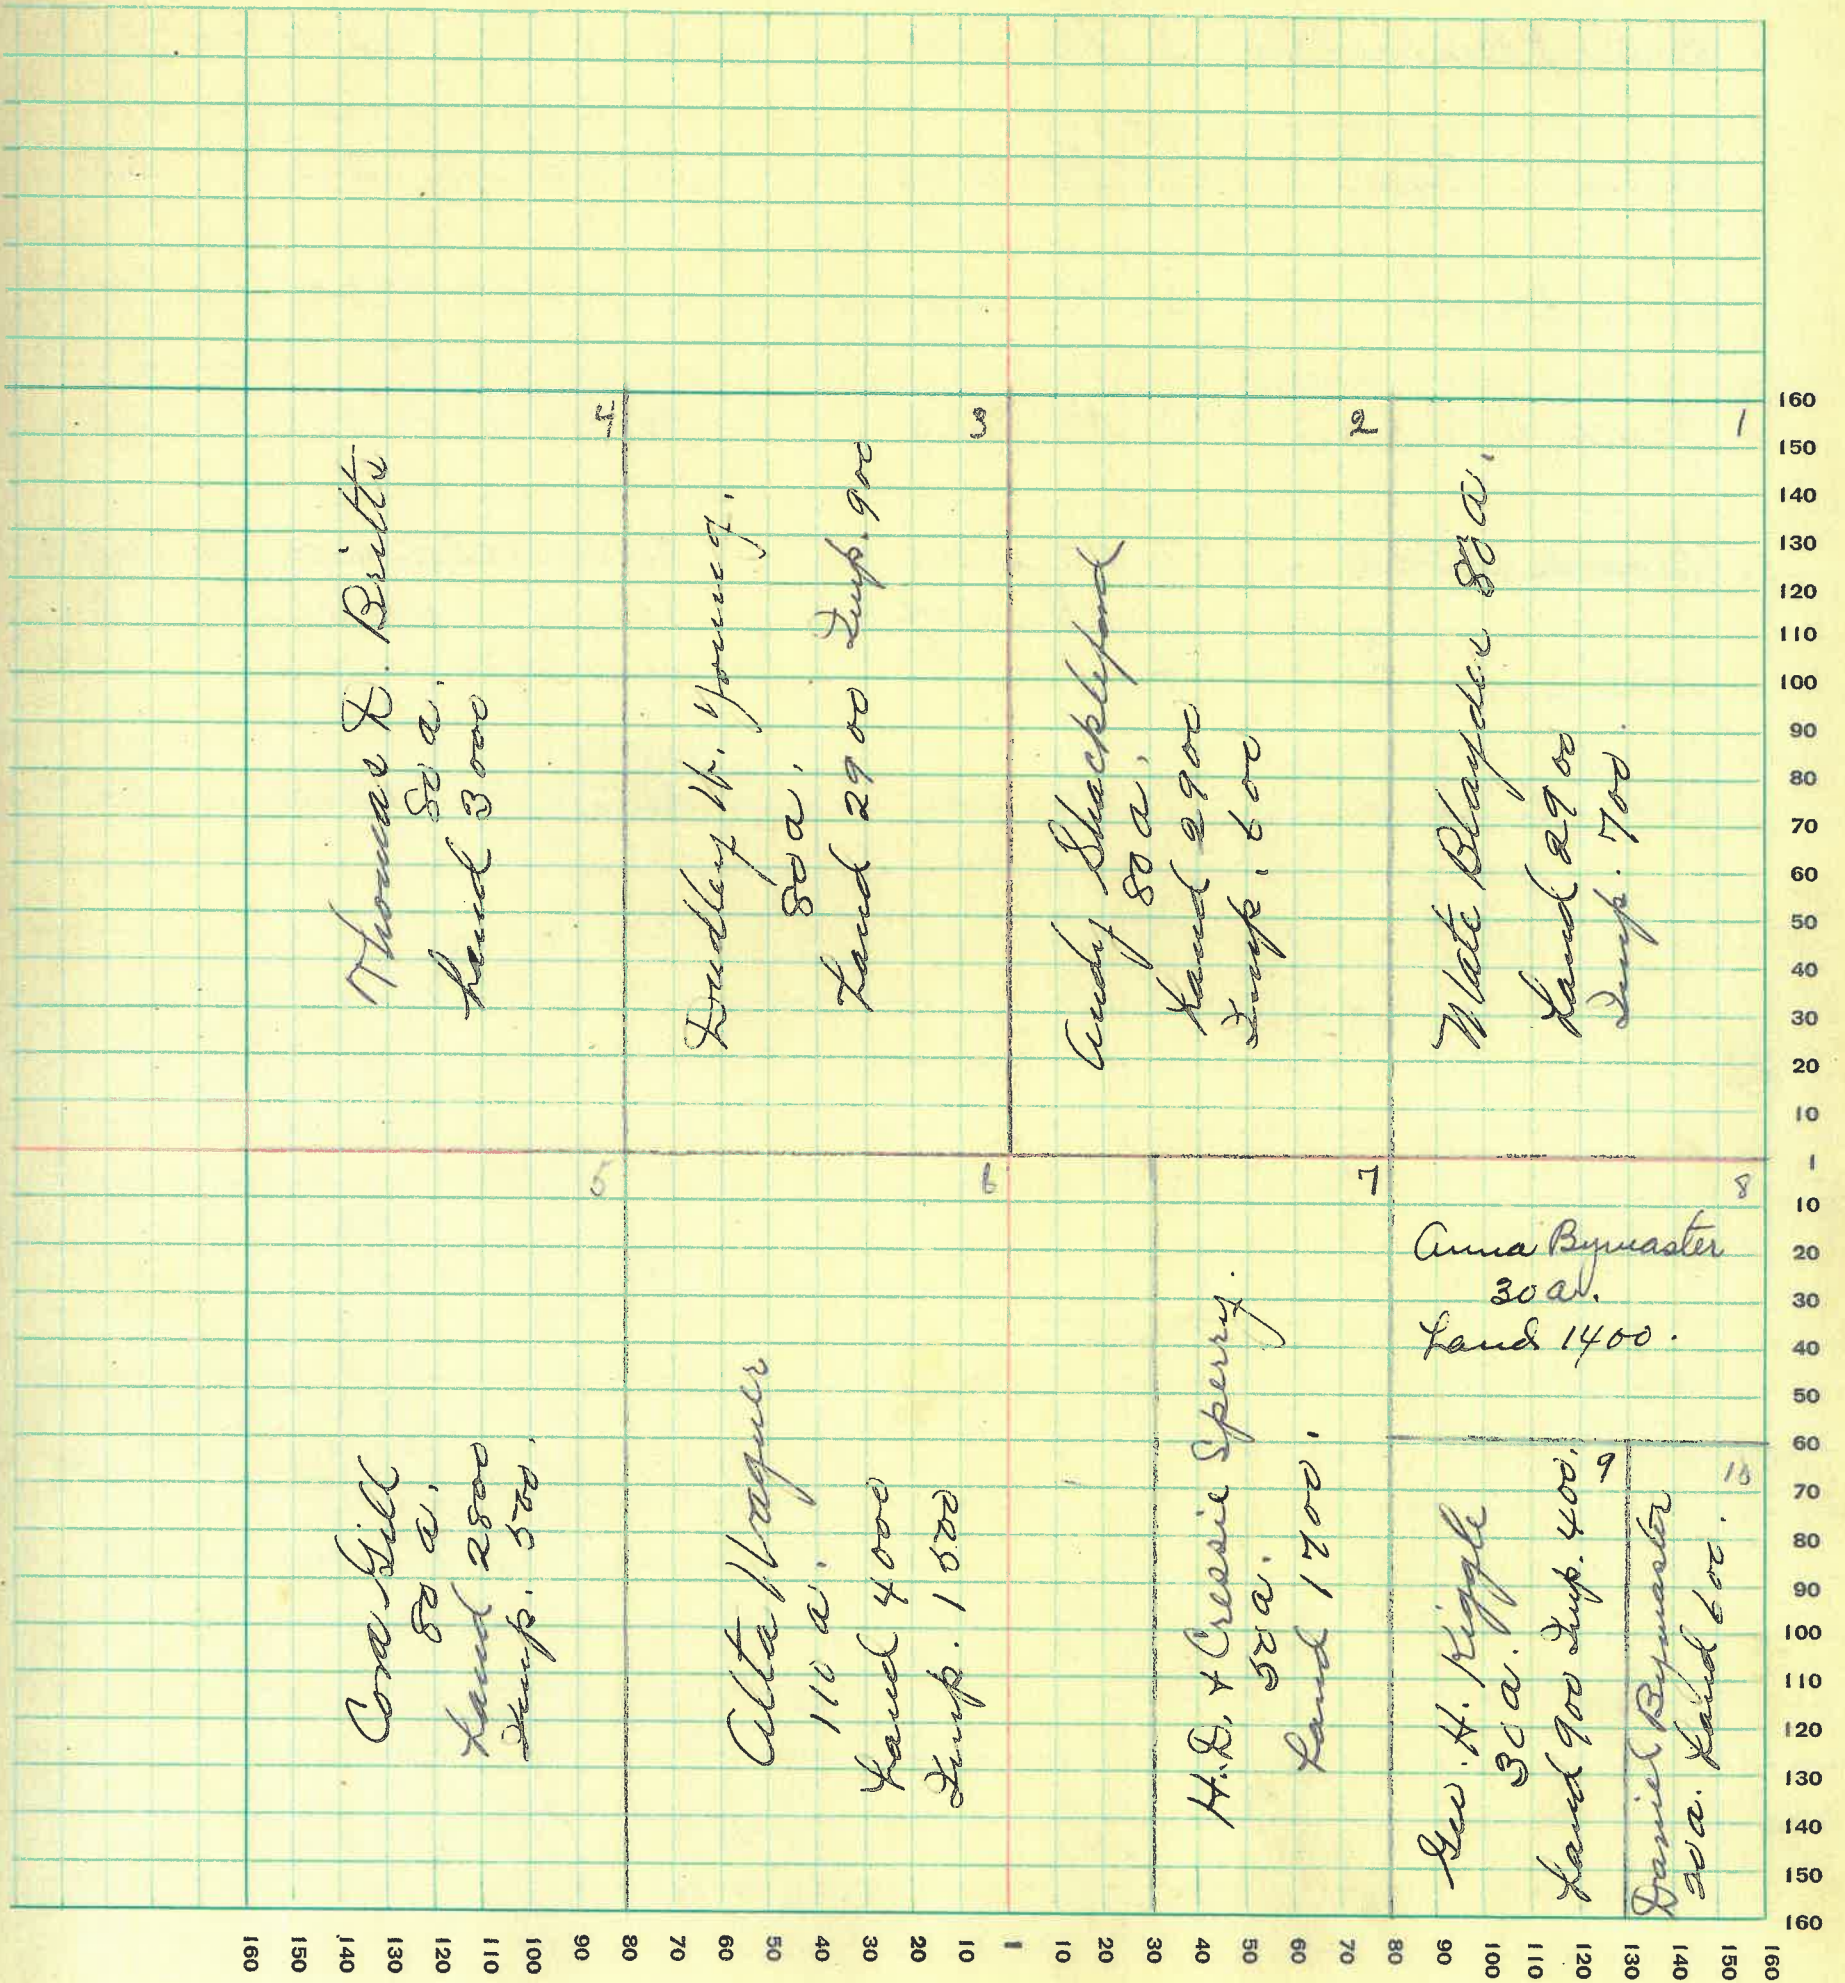 4
Thomas D. Britts
80 a.
Land 3000
3
Dudley W. Young.
80 a.
Land 2900 Imp. 900
2
Andy Shackleford
80 a.
Land 2900
Imp. 600
1
Mate Blayden 80 a.
Land 2900
Imp. 700
5
Cora Gill
80 a.
Land 2800
Imp. 500.
6
Alta Wagner
110 a.
Land 4000
Imp. 1500
7
H.D. & Cressie Sperry.
50 a.
Land 1700.
8
Anna Bymaster
30 a.
Land 1400.
9
Geo. H. Kiggle
30 a.
Land 900 Imp. 400.
10
Daniel Bymaster
20 a. Land 600.
160
150
140
130
120
110
100
90
80
70
60
50
40
30
20
10
1
10
20
30
40
50
60
70
80
90
100
110
120
130
140
150
160
160 150 140 130 120 110 100 90 80 70 60 50 40 30 20 10 1 10 20 30 40 50 60 70 80 90 100 110 120 130 140 150 160